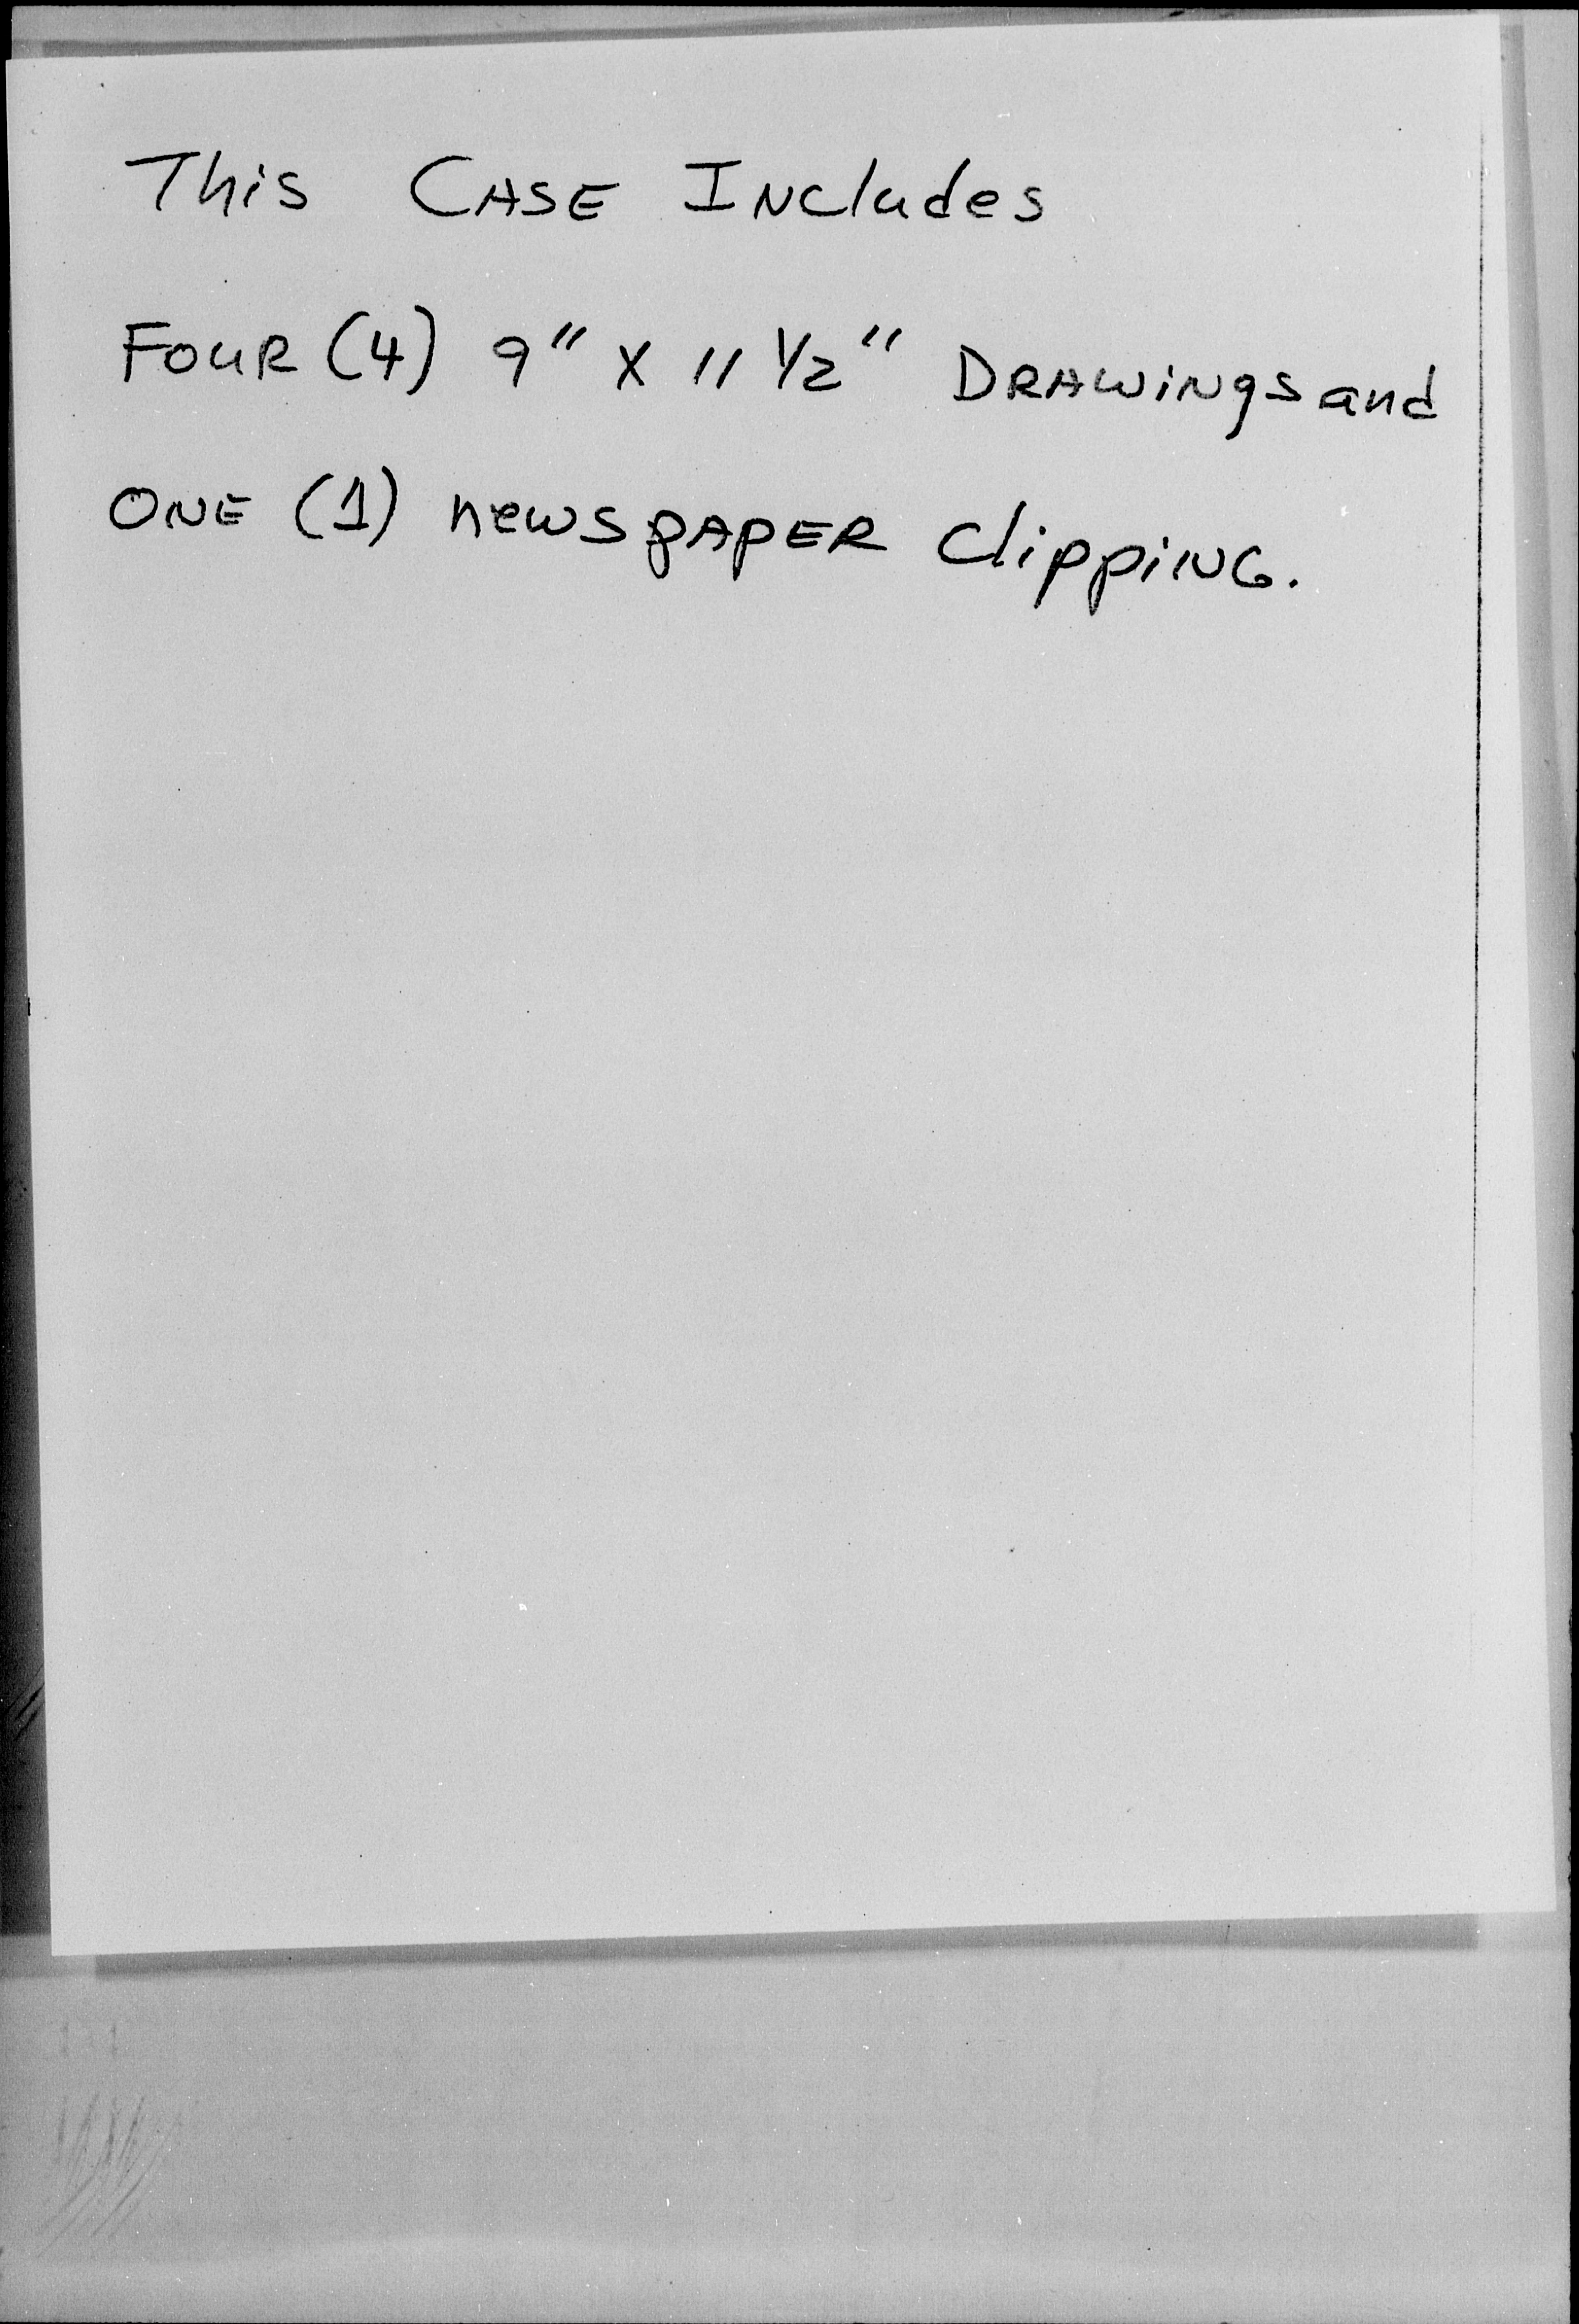 This CASE INCludes
FOUR (4) 9" X 11 1/2" DRAWiNgs and
ONE (1) newspAPER ClippiNG.